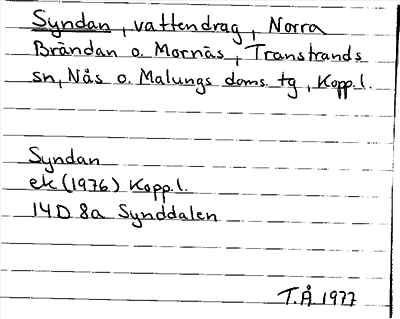 Syndan, vattendrag, Norra
Brändan o. Mornäs, Transtrands
sn, Nås o. Malungs doms. tg, Kopp.l.
Syndan
ek (1976) Kopp.l.
14D 8a Synddalen
T.Å 1977